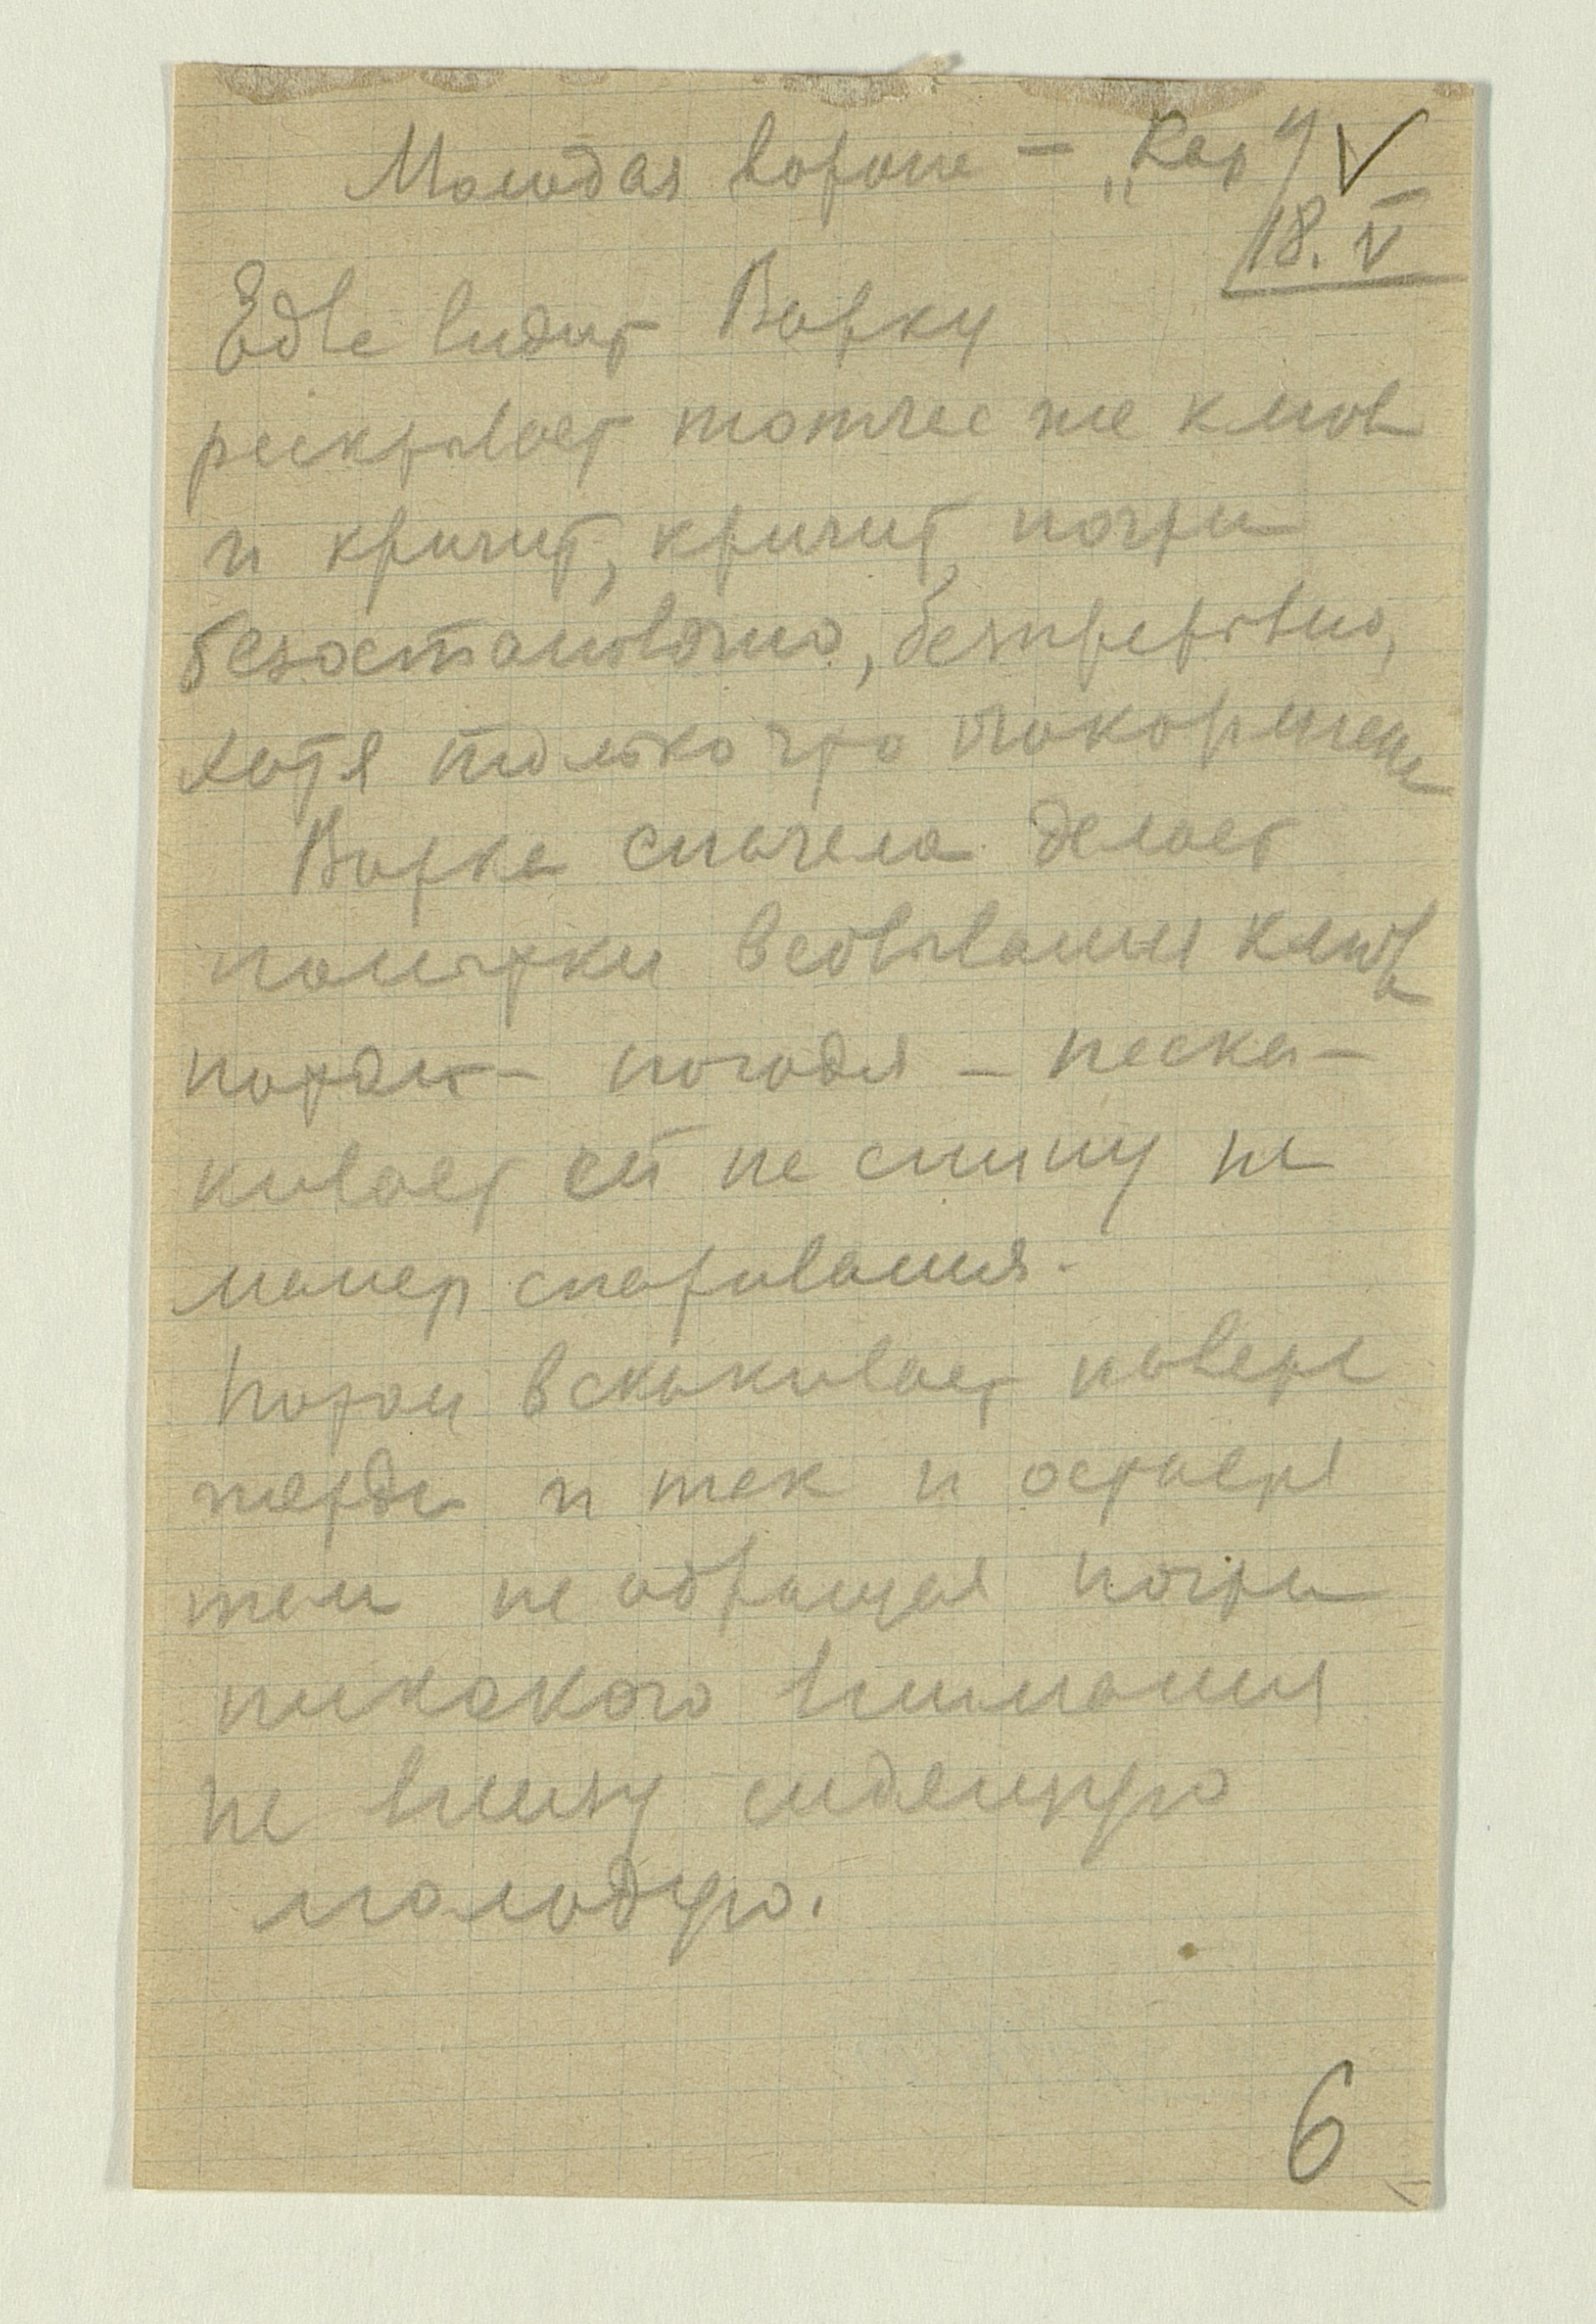 Молодая ворона – „Кар“ V
18. V
Едва видит Ворку
раскрывает тотчас же клюв
и кричит, кричит почти
безостановочно, безпрерывно,
хотя только что накормлена
Ворка сначала делает
попытки всовывания клюва
погодя – наска-
кивает ей на спину на
манер спаривания.
Потом вскакивает наверх
жерди и так и остается
там не обращая почти
никакого внимания
на внизу сидящую
молодую.
6